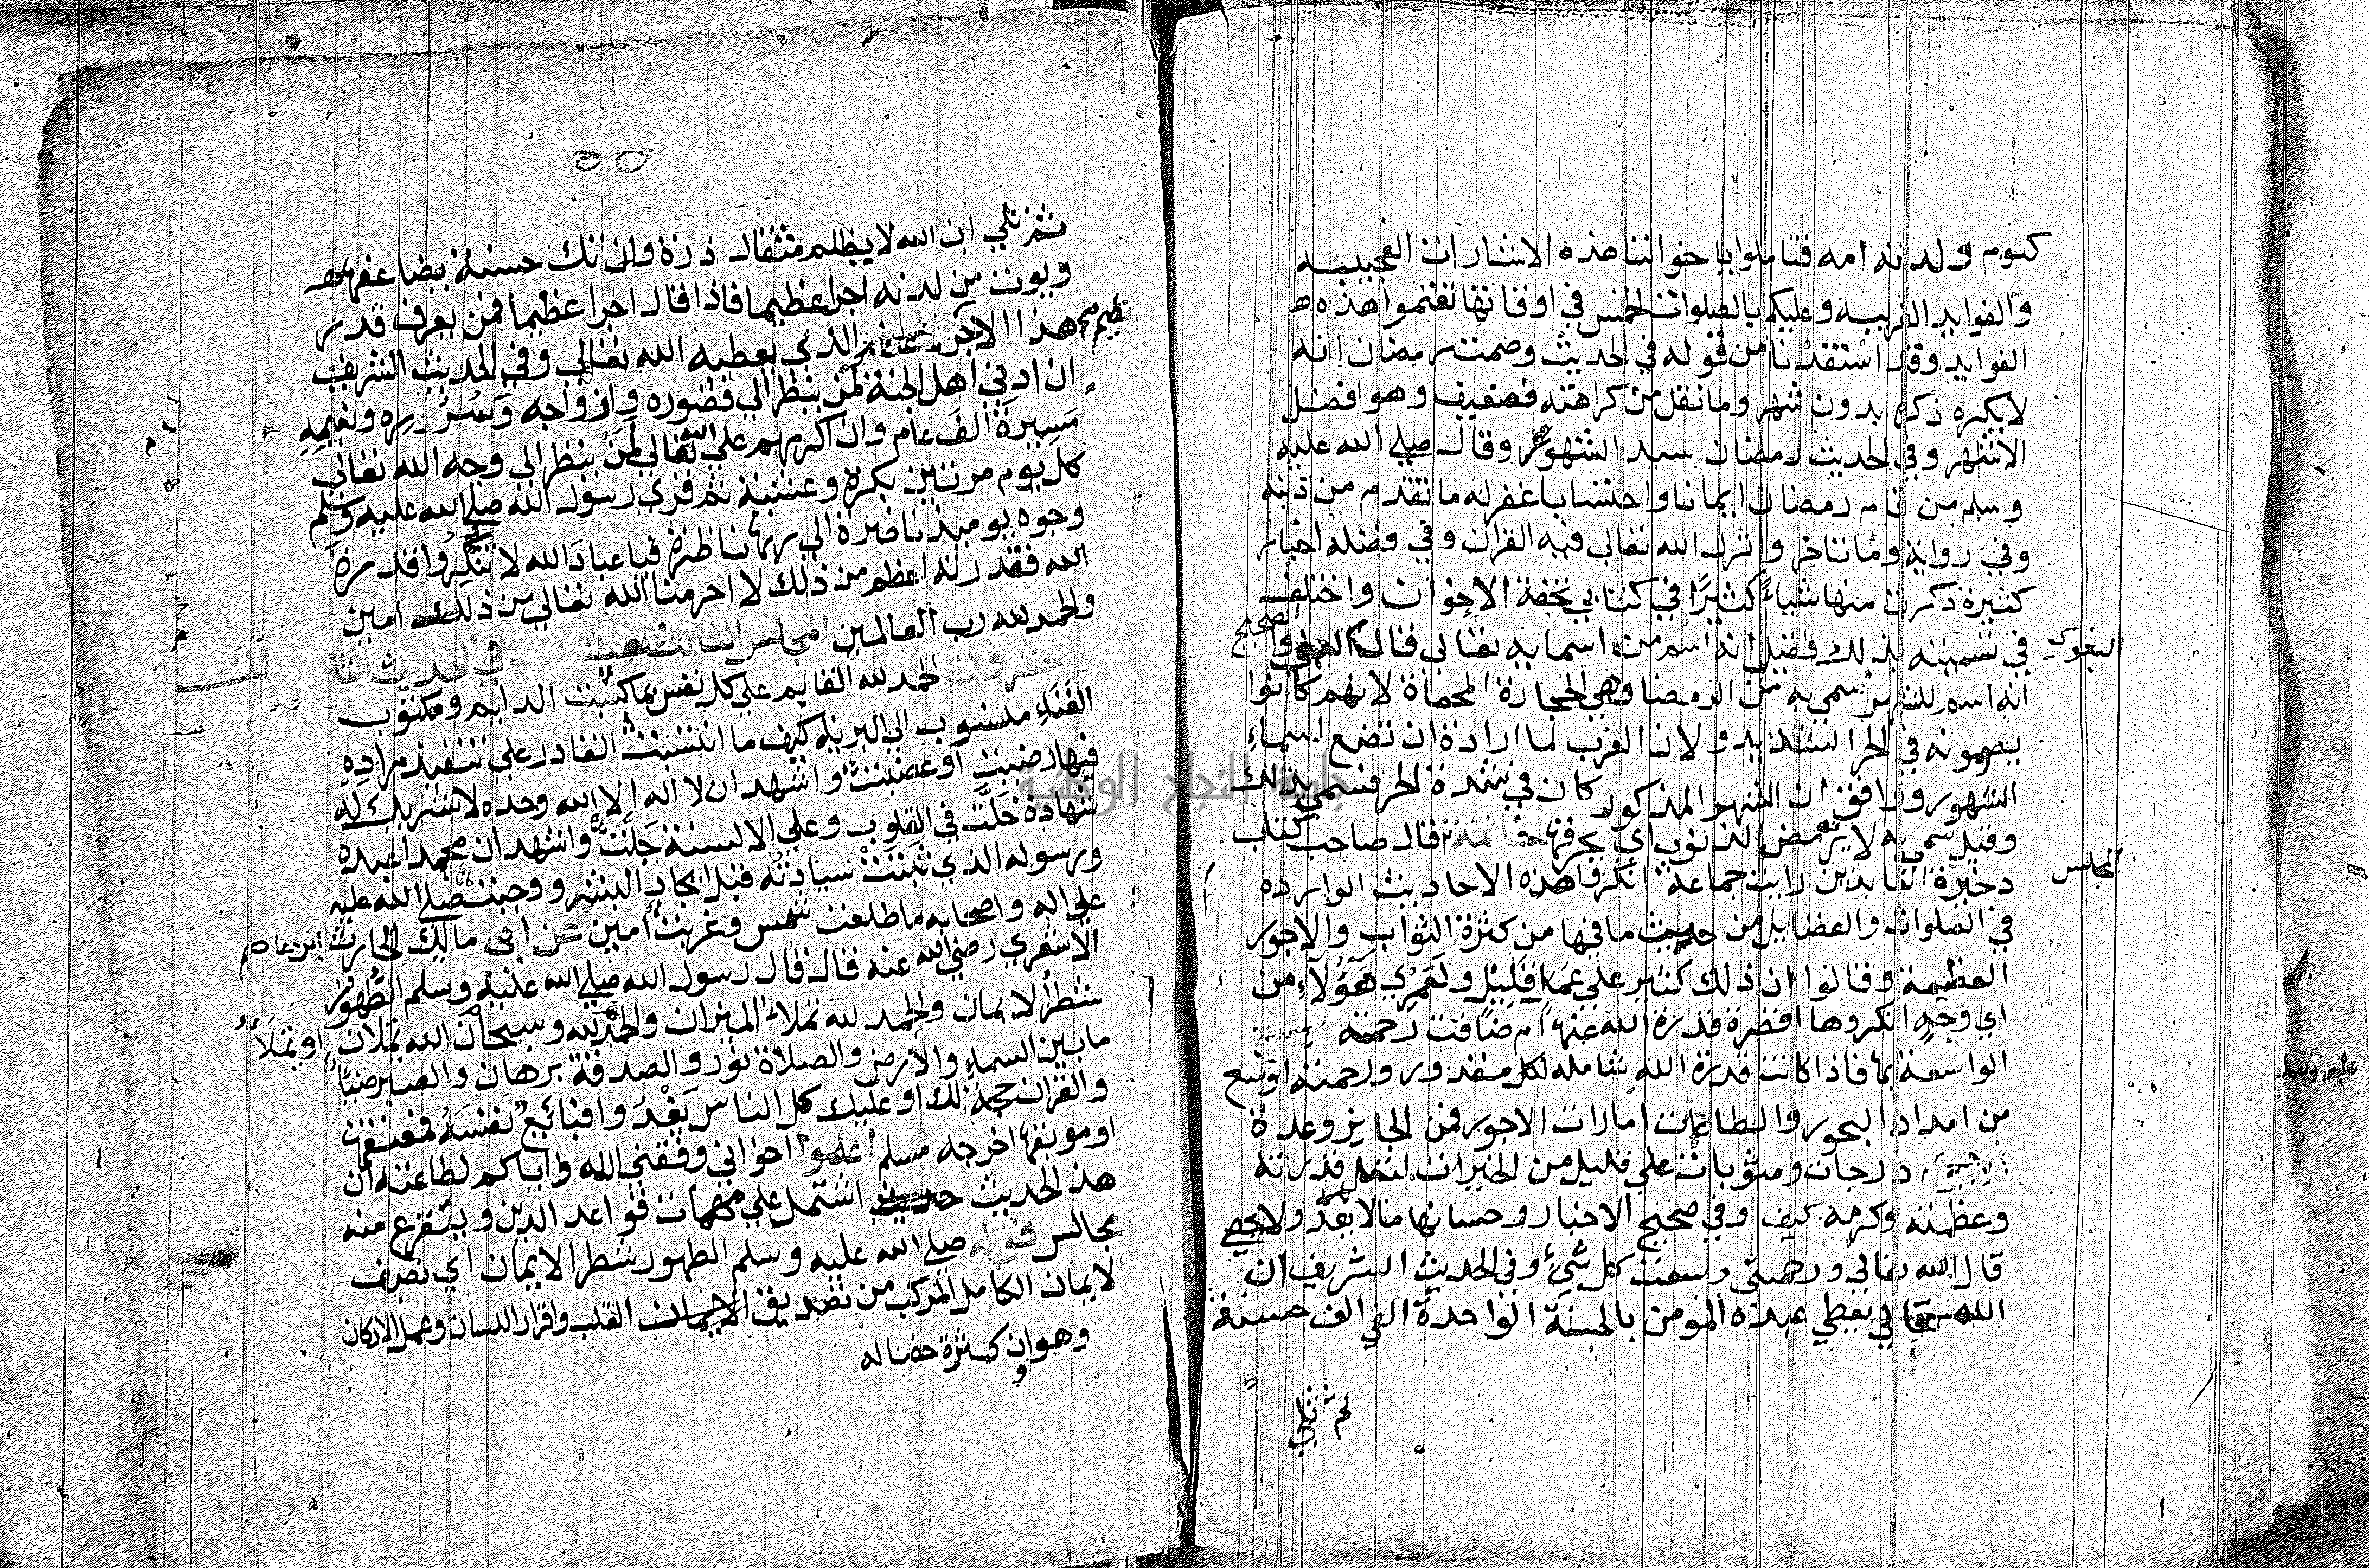 كيوم ولدته امه فتاملوا يا خواننا هذه الاشارات العجيبه
والفوايد الغريبه وعليكم بالصلوات الخمس في اوقاتها تغنموا هذه
الفوايد وقد استفدنا من قوله في الحديث وصمت رمضان انه
لا يكره ذكره بدون شهر وما نقل من كراهته فضعيف وهو افضل
الاشهر وفي الحديث رمضان سيد الشهور وقال صلي الله عليه
وسلم من قام رمضان ايمانا واحتسابا غفر له ما تقدم من ذنبه
وفي رواية وما تاخر وانزل الله تعالي فيه القران وفي فضله اخبار
كثيرة ذكرت منها شياءً كثيرًا في كتابي تحفة الاخوان واختلف
في تسميته بذلك فقيل انه اسم من اسمايه تعالي قال البغوي والصحيح
انه اسم للشهر سمي به من الرمضا وهي الحجارة المحماة لانهم كانوا
يصومونه في الحر الشديد ولان العرب لما ارادة ان تضع اسماء
الشهور ووافق ان الشهر المذكور كان في شدة الحر فسمي بذلك
وقيل سمي به لانه يرمض الذنوب اي يحرقها خاتمة قال صاحب كتاب
دخيرة العابدين رايت جماعة انكروا هذه الاحاديث الوارده
في الصلوات والفضايل من حيث ما فيها من كثرة الثواب والاجور
العظيمة وقالوا ان ذلك كثير علي عمل قليل ولعمري هؤلاء من
اي وجه انكروها اقصرة قدرة الله عنها ام ضاقت رحمته
الواسعة بها فاذا كانت قدرة الله شامله لكل مقدور ورحمته اوسع
من امداد البحور والطاعات امارات الاجور فمن الجايز وعدة
درجات ومثوبات علي قليل من الخيرات لتعلم قدرته
وعظمته وكرمه كيف وفي صحيح الاخبار وحسانها مالا يعد ولا يحصي
قال الله تعالي ورحمتي وسعت كل شيء وفي الحديث الشريف ان
الله تعالي يعطي عبده المومن بالحسنة الواحدة الفي الف حسنة
ثم تلي
البغوي
المجلس
٥٥
ثم تلي ان الله لا يظلم مثقال ذرة وان تك حسنة يضاعفها
ويوت من لدنه اجرا عظيما فاذا قال اجرا عظيما فمن يعرف قدر
هذا الاجر الذي يعطيه الله تعالي وفي الحديث الشريف
ان ادني اهل الجنة لمن ينظر الي قصوره وازواجه وسرره ونعيمه
مسيرة الف عام وان اكرمهم علي الله تعالي لمن ينظر الي وجه الله تعالي
كل يوم مرتين بكرة وعشية ثم قري رسول الله صلي الله عليه وسلم
وجوه يوميذ ناضرة الي ربها ناظرة فيا عباد الله لا تنكروا قدرة
الله فقدرته اعظم من ذلك لا احرمنا الله تعالي من ذلك امين
والحمد لله رب العالمين المجلس الثالث
والعشرون في الحديث الثا لث
الحمد لله القايم علي كل نفس بما كسبت الدايم ومكتوب
الفناء منسوب الي البرية كيف ما انتسبت القادر علي تنفيذ مراده
فيها رضيت او غضبت واشهد ان لا اله الا الله وحده لا شريك له
شهادة حلت في القلوب وعلي الالسنة جلت واشهد ان محمدا عبده
ورسوله الذي ثبتت سيادته قبل ايجاد البشر ووجبت صلي الله عليه
علي اله واصحابه ما طلعت شمس وغربت امين عن ابي مالك الحارث ابن عاصم
الاشعري رضي الله عنه قال قال رسول الله صلي الله عليه وسلم الطهور
شطر الايمان والحمد لله تملاء الميزان والحمد لله وسبحان الله تملان او تملأ
ما بين السماء والارض والصلاة نور والصدقة برهان والصبر ضياء
والقران حجة لك او عليك كل الناس يغدوا فبائع نفسه فمعتقها
او موبقها اخرجه مسلم اعلموا اخواني وفقني الله واياكم لطاعته ان
هذا الحديث اشتمل علي مهمات قواعد الدين ويتفرع منه
مجالس قوله صلي الله عليه وسلم الطهور شطر الايمان اي نصف
الايمان الكامل المركب من تصديق القلب واقرار اللسان وعمل الاركان
وهو وان كثرة خصاله